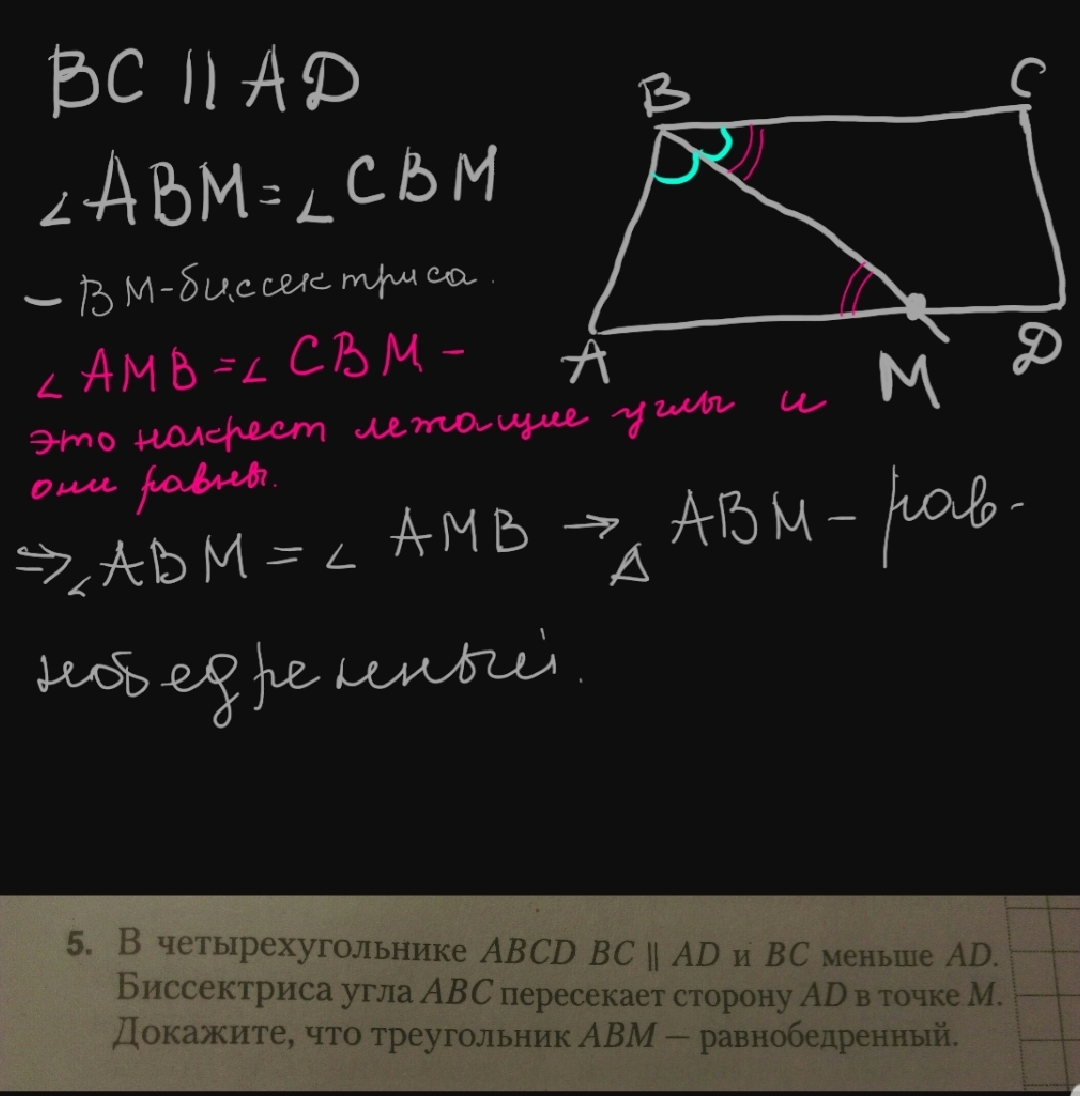 BC || AD
∠ABM=∠CBM
– BM-биссектриса.
∠AMB=∠CBM –
это накрест лежащие углы и
они равны.
⇒∠ABM=∠AMB → Δ ABM – рав-
нобедренный.
B
C
A
M
D
5. В четырехугольнике ABCD BC || AD и BC меньше AD.
Биссектриса угла ABC пересекает сторону AD в точке M.
Докажите, что треугольник ABM — равнобедренный.